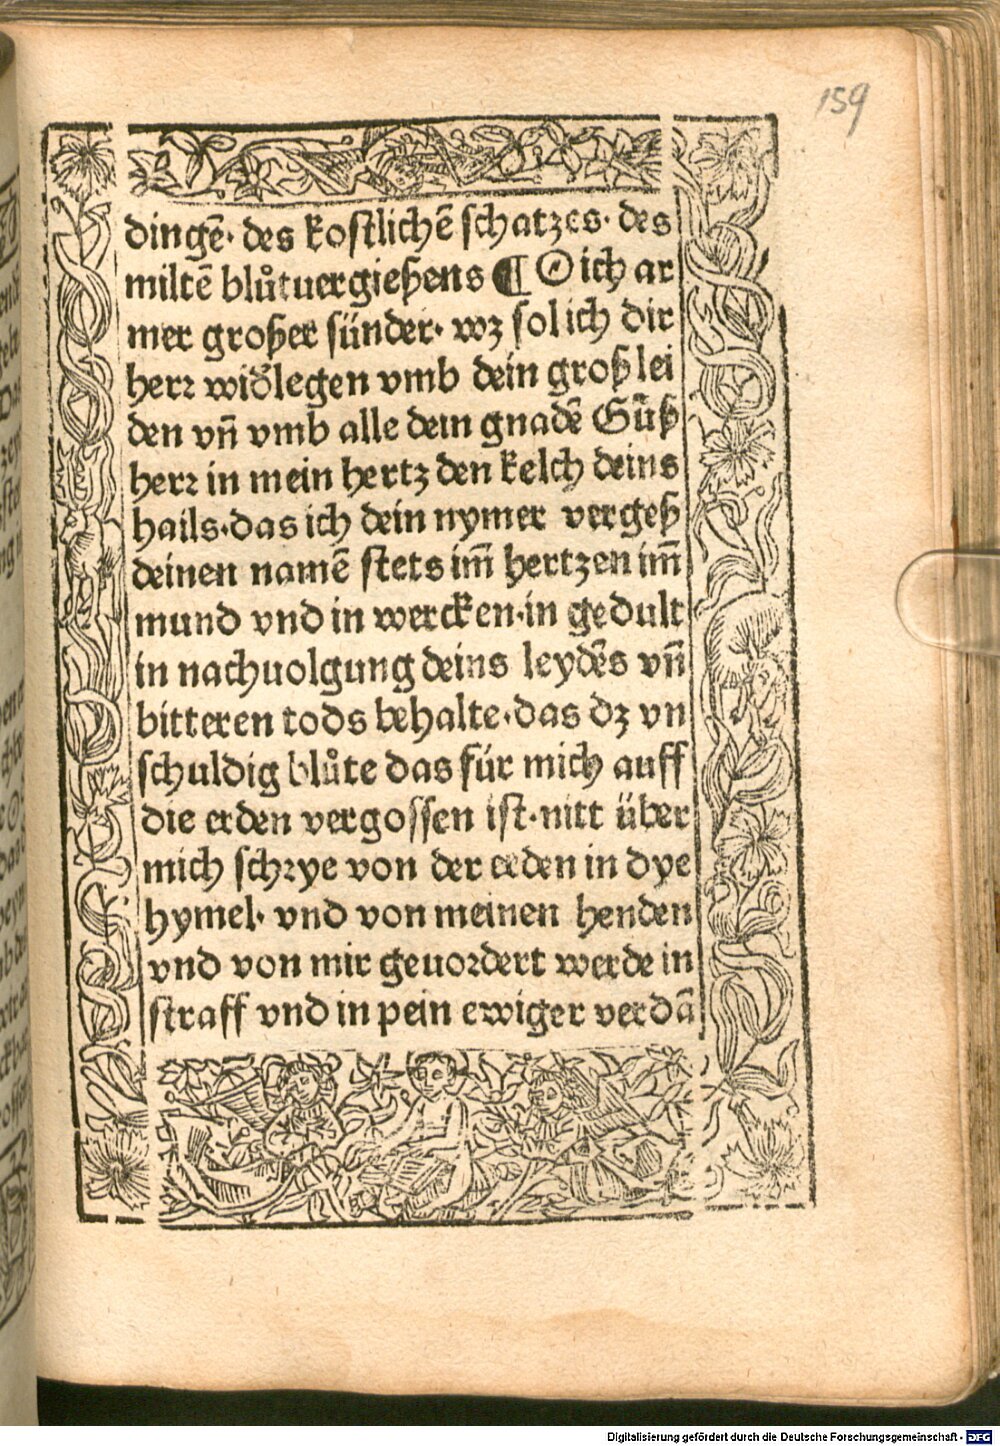 159
dingē· des kostlichē schatzes· des
miltē blůtuergießens ¶ O ich ar
mer großer sünder· wz sol ich dir
herr widlegen vmb dein groß lei
den vñ vmb alle dein gnadē Güß
herr in mein hertz den kelch deins
hails·das ich dein nymer vergeß
deinen namē stets im̄ hertzen im̄
mund vnd in wercken·in gedult
in nachuolgung deins leydēs vñ
bitteren tods behalte·das dz vn
schuldig blůte das für mich auff
die erden vergossen ist·nitt über
mich schrye von der erden in dye
hymel· vnd von meinen henden
vnd von mir geuordert werde in
straff vnd in pein ewiger verdā
Digitalisierung gefördert durch die Deutsche Forschungsgemeinschaft - DFG